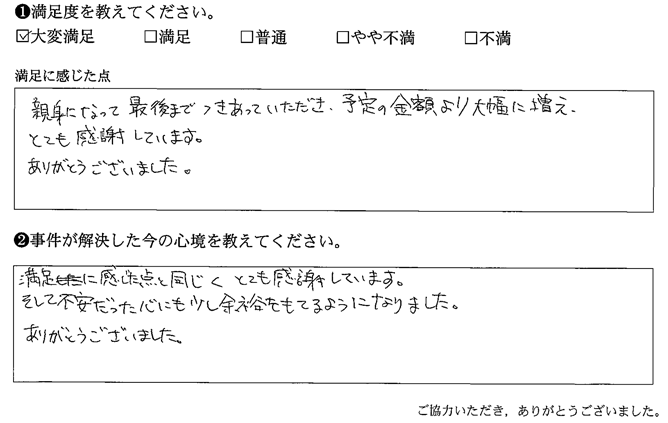 ❶満足度を教えてください。
☑大変満足 □満足 □普通 □やや不満 □不満
満足に感じた点
親身になって最後までつきあっていただき、予定の金額より大幅に増え、
とても感謝しています。
ありがとうございました。
❷事件が解決した今の心境を教えてください。
満足に感じた点と同じくとても感謝しています。
そして不安だった心にも少し余裕をもてるようになりました。
ありがとうございました。
ご協力いただき，ありがとうございました。